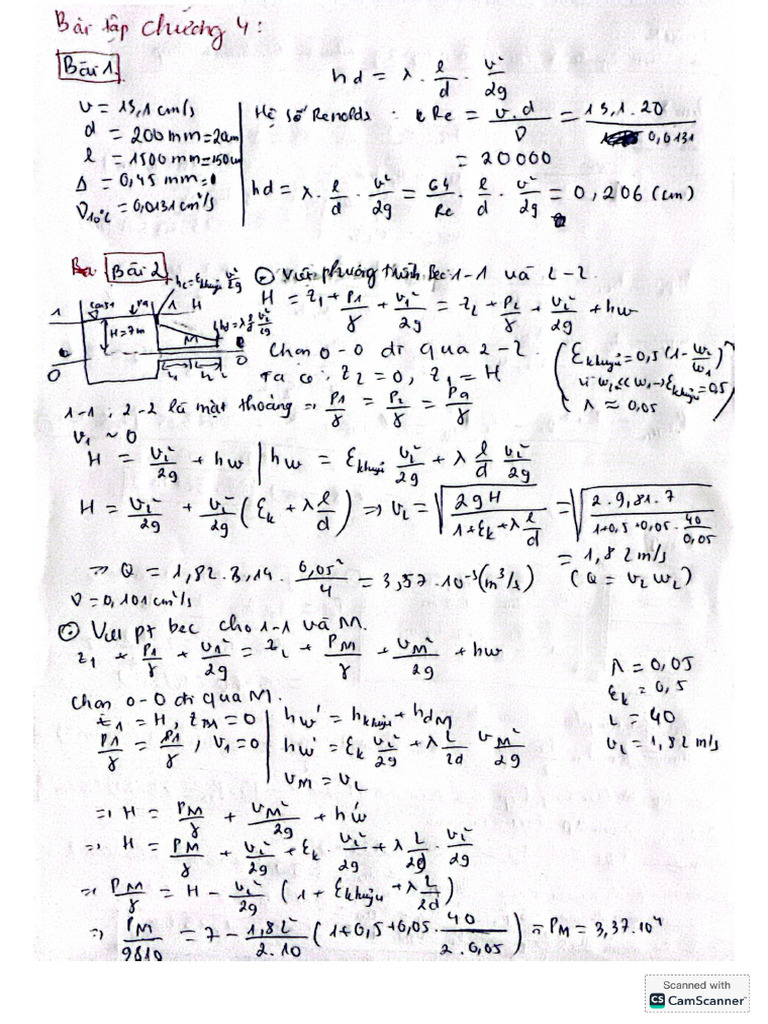 Bài tập chương 4:
Bài 1.
hd = λ . l/d . v²/2g
v = 13,1 cm/s
d = 200 mm = 20cm
l = 1500 mm = 150cm
Δ = 0,45 mm
ν10°C = 0,0131 cm²/s
Hệ số Renolds : Re = v.d/ν = 13,1 . 20 / 0,0131
= 20000
hd = λ . l/d . v²/2g = 64/Re . l/d . v²/2g = 0,206 (cm)
Bài 2
Viết phương trình Bec 1-1 và 2-2.
H = z1 + P1/γ + v1²/2g = z2 + P2/γ + v2²/2g + hw
const Pa 1 H
1
H=7m
M
0 0
hd = λ l/d v²/2g
Chọn 0-0 đi qua 2-2.
Ta có: z2 = 0, z1 = H
(εkhuỷu = 0,5 (1 - w2/w1)
vì w2 << w1 → εkhuỷu = 0,5
λ ≈ 0,05
1-1, 2-2 là mặt thoáng ⇒ P1/γ = P2/γ = Pa/γ
v1 ~ 0
H = v2²/2g + hw | hw = εkhuỷu v2²/2g + λ l/d v2²/2g
H = v2²/2g + v2²/2g (εk + λ l/d) ⇒ v2 = √(2gH / 1+εk+λ l/d) = √(2.9,81.7 / 1+0,5+0,05.40/0,05)
= 1,82 m/s
⇒ Q = 1,82 . 3,14 . 0,05²/4 = 3,57.10⁻³ (m³/s) (Q = v2 w2)
ν = 0,101 cm²/s
Viết pt bec cho 1-1 và M.
z1 + P1/γ + v1²/2g = z2 + PM/γ + vM²/2g + hw
λ = 0,05
εk = 0,5
L = 40
v2 = 1,82 m/s
Chọn 0-0 đi qua M.
z1 = H, zM = 0
P1/γ = P1/γ, v1 = 0
hw' = hkhuỷu + hdM
hw' = εk v2²/2g + λ L/2d vM²/2g
vM = v2
⇒ H = PM/γ + vM²/2g + hw'
⇒ H = PM/γ + v2²/2g + εk . v2²/2g + λ L/2d . v2²/2g
⇒ PM/γ = H - v2²/2g (1 + εkhuỷu + λ L/2d)
⇒ PM/9810 = 7 - 1,82²/2.10 (1+0,5+0,05. 40/2.0,05) ⇒ PM = 3,37.10⁴
Scanned with
CS CamScanner